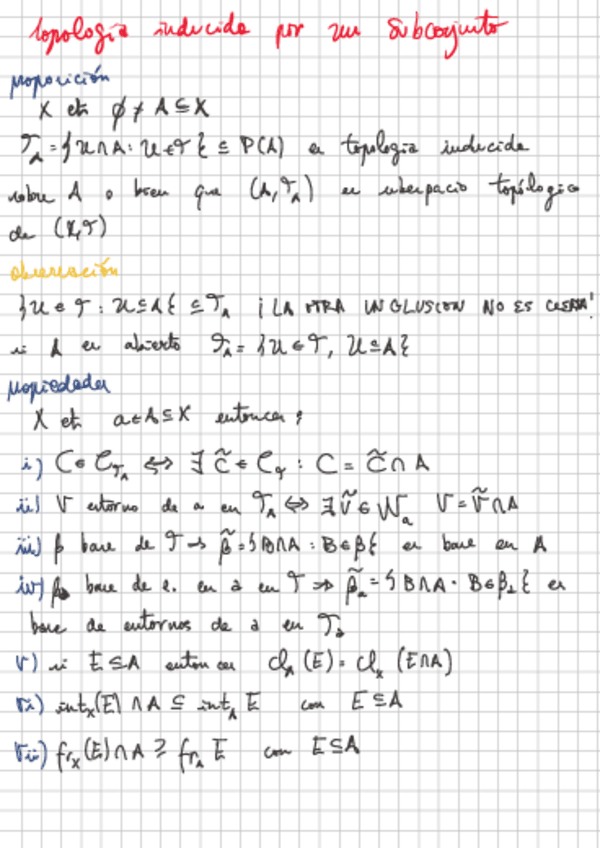 topología inducida por un subconjunto
proposición
X et ∅ ≠ A ⊆ X
𝒯_A = {U∩A : U∈𝒯} ⊆ P(A) es topologia inducida
sobre A o bien que (A, 𝒯_A) es subespacio topólogico
de (X,𝒯)
observación
{U ∈ 𝒯 : U⊆A} ⊆ 𝒯_A ¡LA OTRA INCLUSION NO ES CIERTA!
si A es abierto 𝒯_A = {U∈𝒯, U⊆A}
propiedades
X et a∈A⊆X entonces:
i) C∈C_𝒯_A ⇔ ∃ C̃ ∈ C_𝒯 : C = C̃∩A
ii) V entorno de a en 𝒯_A ⇔ ∃Ṽ∈W_a V=Ṽ∩A
iii) β base de 𝒯 → β̃ = {B∩A : B∈β} es base en A
iv) β_a base de e. en a en 𝒯 ⇒ β̃_a = {B∩A : B∈β_a} es
base de entornos de a en 𝒯_a
v) si E⊆A entonces cl_A (E) = cl_X (E∩A)
vi) int_X(E) ∩A ⊆ int_A E con E⊆A
vii) fr_X(E)∩A ⊇ fr_A E con E⊆A